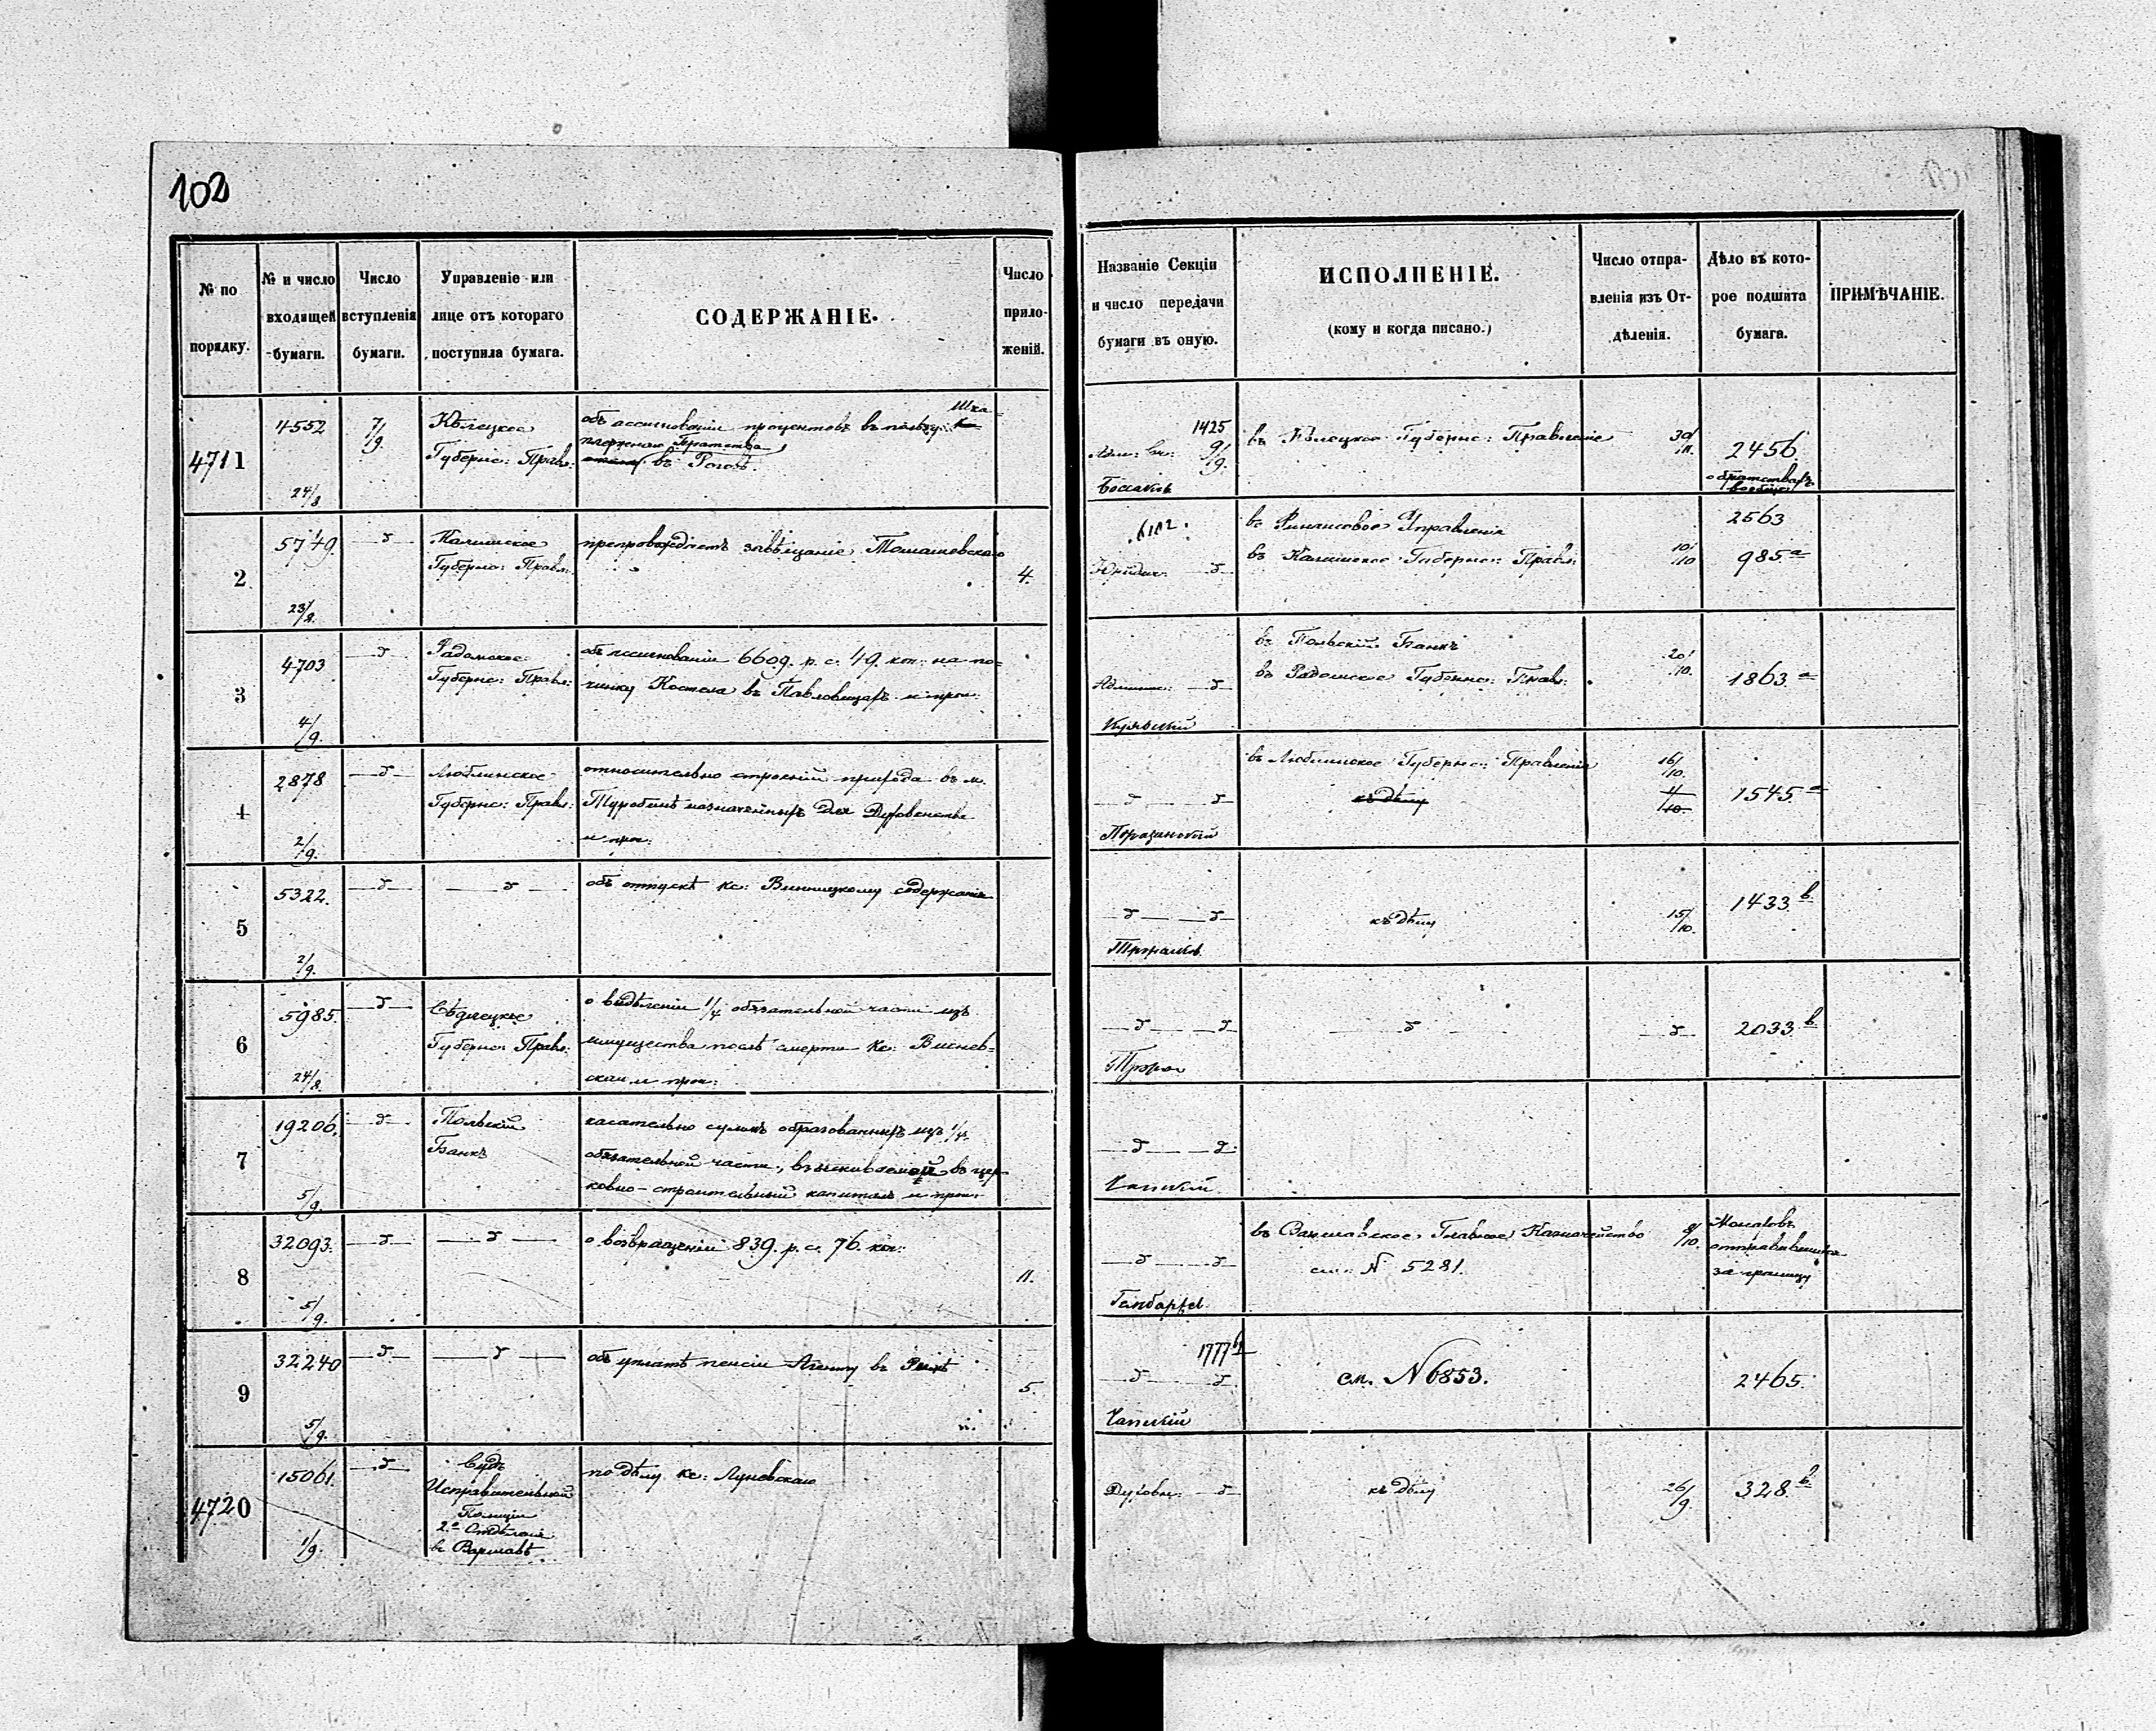 102
№ по порядку.
№ и число входящей бумаги.
Число вступленія бумаги.
Управленіе или лице отъ котораго поступила бумага.
СОДЕРЖАНІЕ.
Число приложеній.
Названіе Секціи и число передачи бумаги въ оную.
ИСПОЛНЕНІЕ.
(кому и когда писано.)
Число отправленія изъ Отдѣленія.
Дѣло въ которое подшита бумага.
ПРИМѢЧАНІЕ.
4711
4552
24/8
7/9.
Кѣлецкое
Губернс: Правл:
объ ассигнованіи процентовъ въ пользу Шка-
плернаго Братства
въ Рогове.
1425
9/9.
въ Кѣлецкое Губернс: Правленіе
30/11.
2456.
о братствахъ
вообще
2
5749.
23/8.
Калишское
Губернс: Правл:
препровождаетъ завѣщаніе Томашевскаго
4.
Юридич:
въ Финансовое Управленіе
въ Калишское Губернс: Правл:
10/10
2563
985 а
3
4703
4/9.
Радомское
Губернс: Правл:
объ ассигнованіи 6609. р. с. 49. коп: на по-
чинку Костела въ Павловицахъ и проч:
Админ:
въ Польскій Банкъ
въ Радомское Губернс: Правл:
20/10.
1863 а
4
2878
2/9.
Люблинское
Губернс: Правл:
относительно строеній прихода въ м.
Туробинѣ назначенныхъ для Духовенства
и проч:
въ Люблинское Губернс: Правленіе
къ дѣлу
16/10.
4/10.
1545 а
5
5322.
2/9.
объ отпускѣ кс: Винницкому содержанія
къ дѣлу
15/10.
1433 в
6
5985.
24/8.
Сѣдлецкое
Губернс: Правл:
о выдѣленіи 1/4 обязательной части изъ
имущества послѣ смерти Кс: Виснев-
скаи и проч:
2033 в
7
19206.
5/9.
Польскій
Банкъ
касательно суммъ образованныхъ изъ 1/4.
обязательной части, взыскиваемой въ цер-
ковно-строительный капиталъ и проч:
Чапскій
8
32093.
5/9.
о возвращеніи 839. р. с. 76. коп:
11.
въ Варшавское Главное Казначейство
см: № 5281.
8/10.
Монаховъ
отправившихся
за границу
9
32240
5/9.
объ уплатѣ пенсіи Агенту въ Римѣ
5.
1777
Чапскій
см. № 6853.
2465.
4720
15061.
1/9.
Судъ
Исправительной
Полиціи
2.го Отдѣленія
въ Варшавѣ
по дѣлу кс: Луневскаго
Духовн:
къ дѣлу
26/9.
328. в